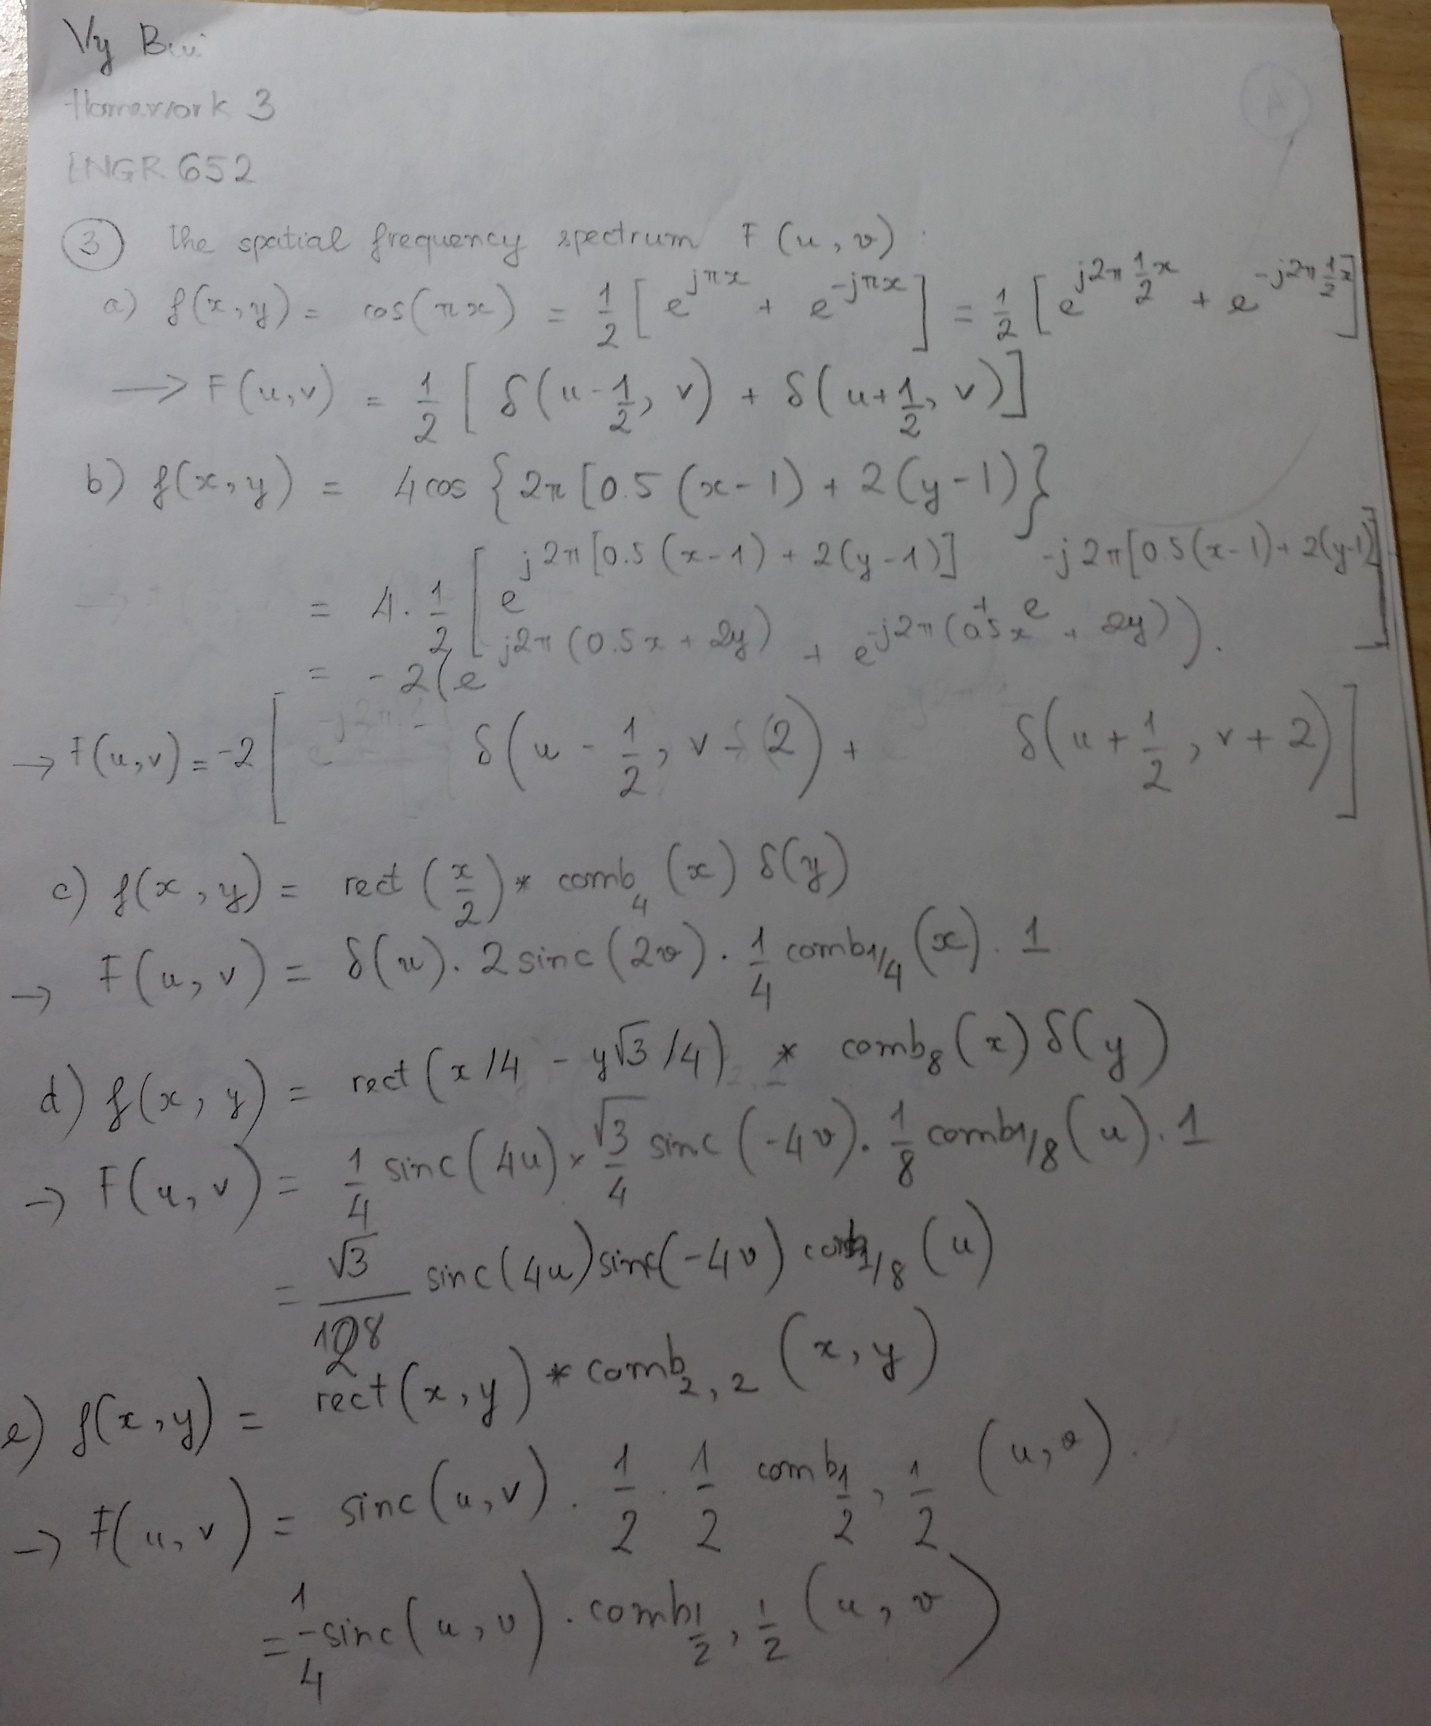 Vy Bui
Homework 3
ENGR 652
③ the spatial frequency spectrum F(u,v):
a) f(x,y) = cos(πx) = 1/2 [e^{jπx} + e^{-jπx}] = 1/2 [e^{j2π 1/2 x} + e^{-j2π 1/2 x}]
→ F(u,v) = 1/2 [δ(u-1/2, v) + δ(u+1/2, v)]
b) f(x,y) = 4cos{2π[0.5(x-1) + 2(y-1)}
= 4·1/2 [e^{j2π[0.5(x-1) + 2(y-1)]} + e^{-j2π[0.5(x-1) + 2(y-1)]}]
= -2(e^{j2π(0.5x + 2y)} + e^{-j2π(0.5x + 2y)}).
→ F(u,v) = -2[δ(u - 1/2, v - 2) + δ(u + 1/2, v + 2)]
c) f(x,y) = rect(x/2) * comb_4(x) δ(y)
→ F(u,v) = δ(u). 2sinc(2v). 1/4 comb_{1/4}(x). 1
d) f(x,y) = rect(x/4 - y√3/4) * comb_8(x) δ(y)
→ F(u,v) = 1/4 sinc(4u) × √3/4 sinc(-4v). 1/8 comb_{1/8}(u). 1
= √3/128 sinc(4u) sinc(-4v) comb_{1/8}(u)
e) f(x,y) = rect(x,y) * comb_{2,2}(x,y)
→ F(u,v) = sinc(u,v). 1/2 . 1/2 comb_{1/2, 1/2}(u,v).
= 1/4 sinc(u,v). comb_{1/2, 1/2}(u,v)